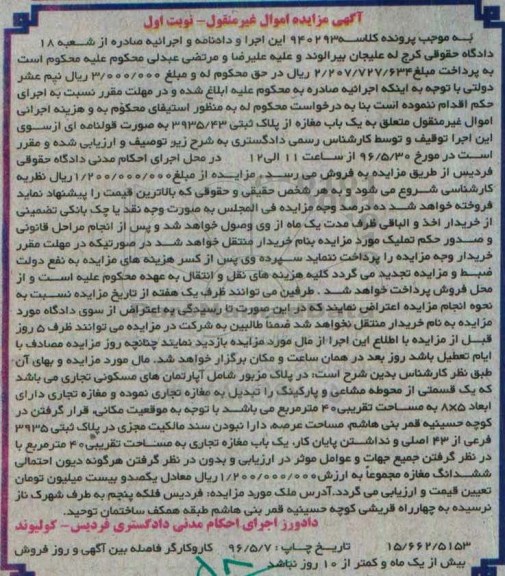 آگهی مزایده اموال غیرمنقول- نوبت اول
به موجب پرونده کلاسه ۹۴۰۲۹۳ این اجرا و دادنامه و اجرائیه صادره از شعبه ۱۸
دادگاه حقوقی کرج له علیجان بیرالوند و علیه علیرضا و مرتضی عبدلی محکوم علیه محکوم است
به پرداخت مبلغ ۲/۲۰۷/۷۲۷/۶۳۴ ریال در حق محکوم له و مبلغ ۳/۰۰۰/۰۰۰ ریال نیم عشر
دولتی با توجه به اینکه اجرائیه صادره به محکوم علیه ابلاغ شده و در مهلت مقرر نسبت به اجرای
حکم اقدام ننموده است بنا به درخواست محکوم له به منظور استیفای محکوم به و هزینه اجرائی
اموال غیرمنقول متعلق به یک باب مغازه از پلاک ثبتی ۳۹۳۵/۴۳ به صورت قولنامه ای ازسوی
این اجرا توقیف و توسط کارشناس رسمی دادگستری به شرح زیر توصیف و ارزیابی شده و مقرر
است در مورخ ۹۶/۵/۳۰ از ساعت ۱۱ الی۱۲ در محل اجرای احکام مدنی دادگاه حقوقی
فردیس از طریق مزایده به فروش می رسد. مزایده از مبلغ ۱/۲۰۰/۰۰۰/۰۰۰ریال نظریه
کارشناسی شروع می شود و به هر شخص حقیقی و حقوقی که بالاترین قیمت را پیشنهاد نماید
فروخته خواهد شد ده درصد وجه مزایده فی المجلس به صورت وجه نقد یا چک بانکی تضمینی
از خریدار اخذ و الباقی ظرف مدت یک ماه از وی وصول خواهد شد و پس از انجام مراحل قانونی
و صدور حکم تملیک مورد مزایده بنام خریدار منتقل خواهد شد در صورتیکه در مهلت مقرر
خریدار وجه مزایده را پرداخت ننماید سپرده وی پس از کسر هزینه های مزایده به نفع دولت
ضبط و مزایده تجدید می گردد کلیه هزینه های نقل و انتقال به عهده محکوم علیه است و از
محل فروش پرداخت خواهد شد. طرفین می توانند ظرف یک هفته از تاریخ مزایده نسبت به
نحوه انجام مزایده اعتراض نمایند که در این صورت تا رسیدگی به اعتراض از سوی دادگاه مورد
مزایده به نام خریدار منتقل نخواهد شد ضمناً طالبین به شرکت در مزایده می توانند ظرف ۵ روز
قبل از مزایده با اطلاع این اجرا از مال مورد مزایده بازدید نمایند چنانچه روز مزایده مصادف با
ایام تعطیل باشد روز بعد در همان ساعت و مکان برگزار خواهد شد. مال مورد مزایده و بهای آن
طبق نظر کارشناس بدین شرح است: در پلاک مزبور شامل آپارتمان های مسکونی تجاری می باشد
که یک قسمتی از محوطه مشاعی و پارکینگ را تبدیل به مغازه تجاری نموده و مغازه تجاری دارای
ابعاد ۸x۵ به مساحت تقریبی۴۰ مترمربع می باشد با توجه به موقعیت مکانی، قرار گرفتن در
کوچه حسینیه قمر بنی هاشم، مساحت عرصه، دارا نبودن سند مالکیت مجزی در پلاک ثبتی ۳۹۳۵
فرعی از ۴۳ اصلی و نداشتن پایان کار، یک باب مغازه تجاری به مساحت تقریبی۴۰ مترمربع با
در نظر گرفتن جمیع جهات و عوامل موثر در ارزیابی و بدون در نظر گرفتن هرگونه دیون احتمالی
ششدانگ مغازه مجموعاً به ارزش ۱/۲۰۰/۰۰۰/۰۰۰ریال معادل یکصدو بیست میلیون تومان
تعیین قیمت و ارزیابی می گردد.آدرس ملک مورد مزایده: فردیس فلکه پنجم به طرف شهرک ناز
نرسیده به چهارراه قریشی کوچه حسینیه قمر بنی هاشم طبقه همکف ساختمان توحید.
دادورز اجرای احکام مدنی دادگستری فردیس- کولیوند
۱۵/۶۶۲/۵۱۵۳ تاریخ چاپ: ۹۶/۵/۷ کاروکارگر فاصله بین آگهی و روز فروش
بیش از یک ماه و کمتر از ۱۰ روز نباشد